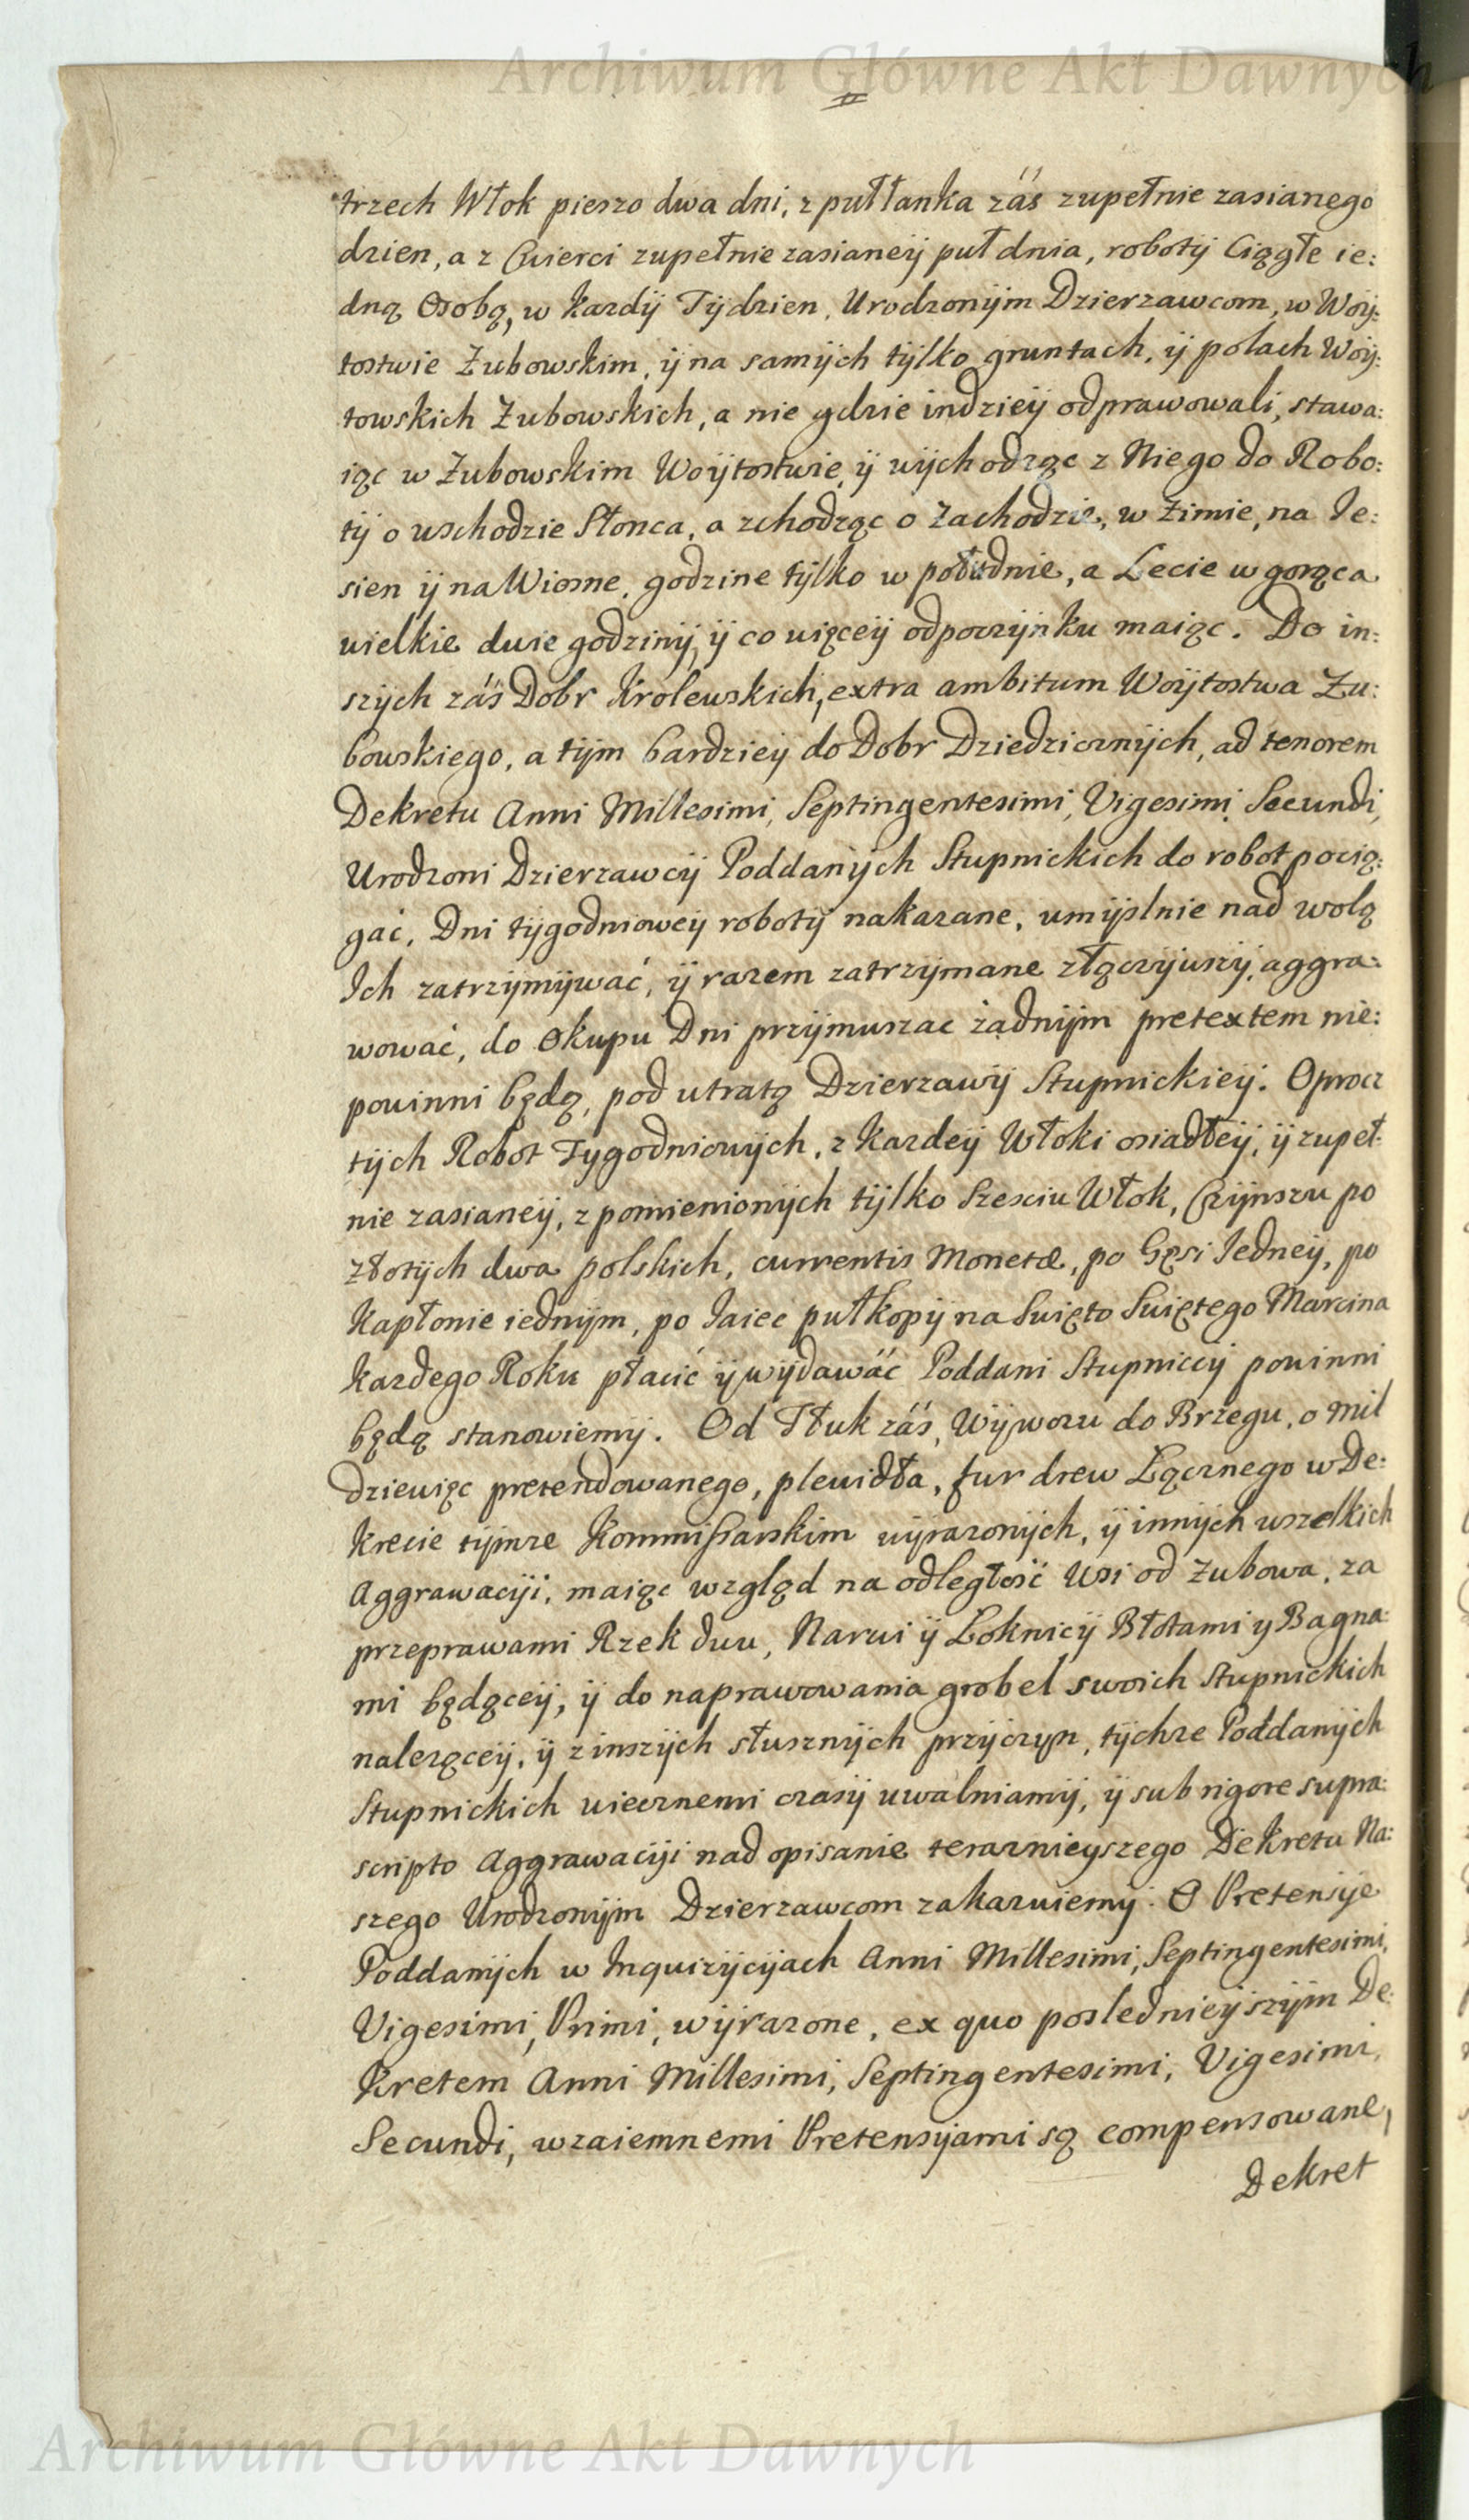 Archiwum Główne Akt Dawnych
trzech Włok pieszo dwa dni, z pułłanka záś zupełnie zasianego
dzien, a z Cwierci zupełnie zasianeÿ puł dnia, robotÿ Ciągłe ie:
dną Osobą, w kazdÿ Tÿdzien, Urodzonÿm Dzierzawcom, w Woÿ:
tostwie Zubowskim, ÿ na samÿch tÿlko gruntach, ÿ polach Woÿ:
towskich Zubowskich, a nie gdzie indzieÿ odprawowali, stawa:
iąc w Zubowskim Woÿtostwie, ÿ wÿchodząc z Niego do Robo:
tÿ o wschodzie Słonca, a zchodząc o Zachodzie, w Zimie, na Je:
sien ÿ na Wiosne, godzine tÿlko w południe, a Lecie w gorąca
wielkie dwie godzinÿ, ÿ co więceÿ odpoczÿnku maiąc. Do in:
szÿch záś Dobr Krolewskich, extra ambitum Woÿtostwa Zu:
bowskiego, a tÿm bardzieÿ do Dobr Dziedzicznÿch, ad tenorem
Dekretu Anni Millesimi, Septingentesimi, Vigesimi, Secundi,
Urodzoni Dzierzawcÿ Poddanÿch Stupnickich do robot pocią:
gać, Dni tÿgodnioweÿ robotÿ nakazane, umÿslnie nad wolą
Ich zatrzÿmÿwać, ÿ razem zatrzÿmane złączÿwszÿ, aggra:
wować, do Okupu Dni przÿmuszac żadnÿm pretextem nie:
powinni będą, pod utratą Dzierzawÿ Stupnickieÿ. Oprocz
tÿch Robot Tygodniowÿch, z kazdeÿ Włoki osiadłeÿ, ÿ zupeł:
nie zasianeÿ, z pomienionÿch tÿlko Szesciu Włok, Czÿnszu po
złotÿch dwa polskich, currentis Monetæ, po Gęsi Jedneÿ, po
Kapłonie iednÿm, po Jaiec pułkopÿ na Swięto Swiętego Marcina
kazdego Roku płacić ÿ wÿdawáć Poddani Stupniccÿ powinni
będą stanowiemÿ. Od Tłuk záś, Wÿwozu do Brzegu, o mil
dziewięc pretendowanego, plewidła, fur drew Łącznego w De:
krecie tÿmze Kommissarskim wÿrazonÿch, ÿ innÿch wszelkich
Aggrawacÿi, maiąc wzgląd na odległość Wsi od Zubowa, za
przeprawami Rzek dwu, Narwi ÿ Łoknicÿ Błotami y Bagna:
mi będąceÿ, ÿ do naprawowania grobel swoich Stupnickich
naleząceÿ, ÿ z inszÿch słusznÿch przÿczÿn, tÿchze Poddanÿch
Stupnickich wiecznemi czasÿ uwalniamÿ, ÿ sub rigore supra:
scripto Aggrawacÿi nad opisanie terazniejszego Dekretu Na:
szego Urodzonÿm Dzierzawcom zakazuiemÿ. O Pretensÿe
Poddanÿch w Inquizÿcÿach Anni Millesimi, Septingentesimi,
Vigesimi, Primi, wÿrazone, ex quo poslednieÿszÿm De:
kretem Anni Millesimi, Septingentesimi, Vigesimi,
Secundi, wzaiemnemi Pretensÿami są compensowane,
Dekret
Archiwum Główne Akt Dawnych